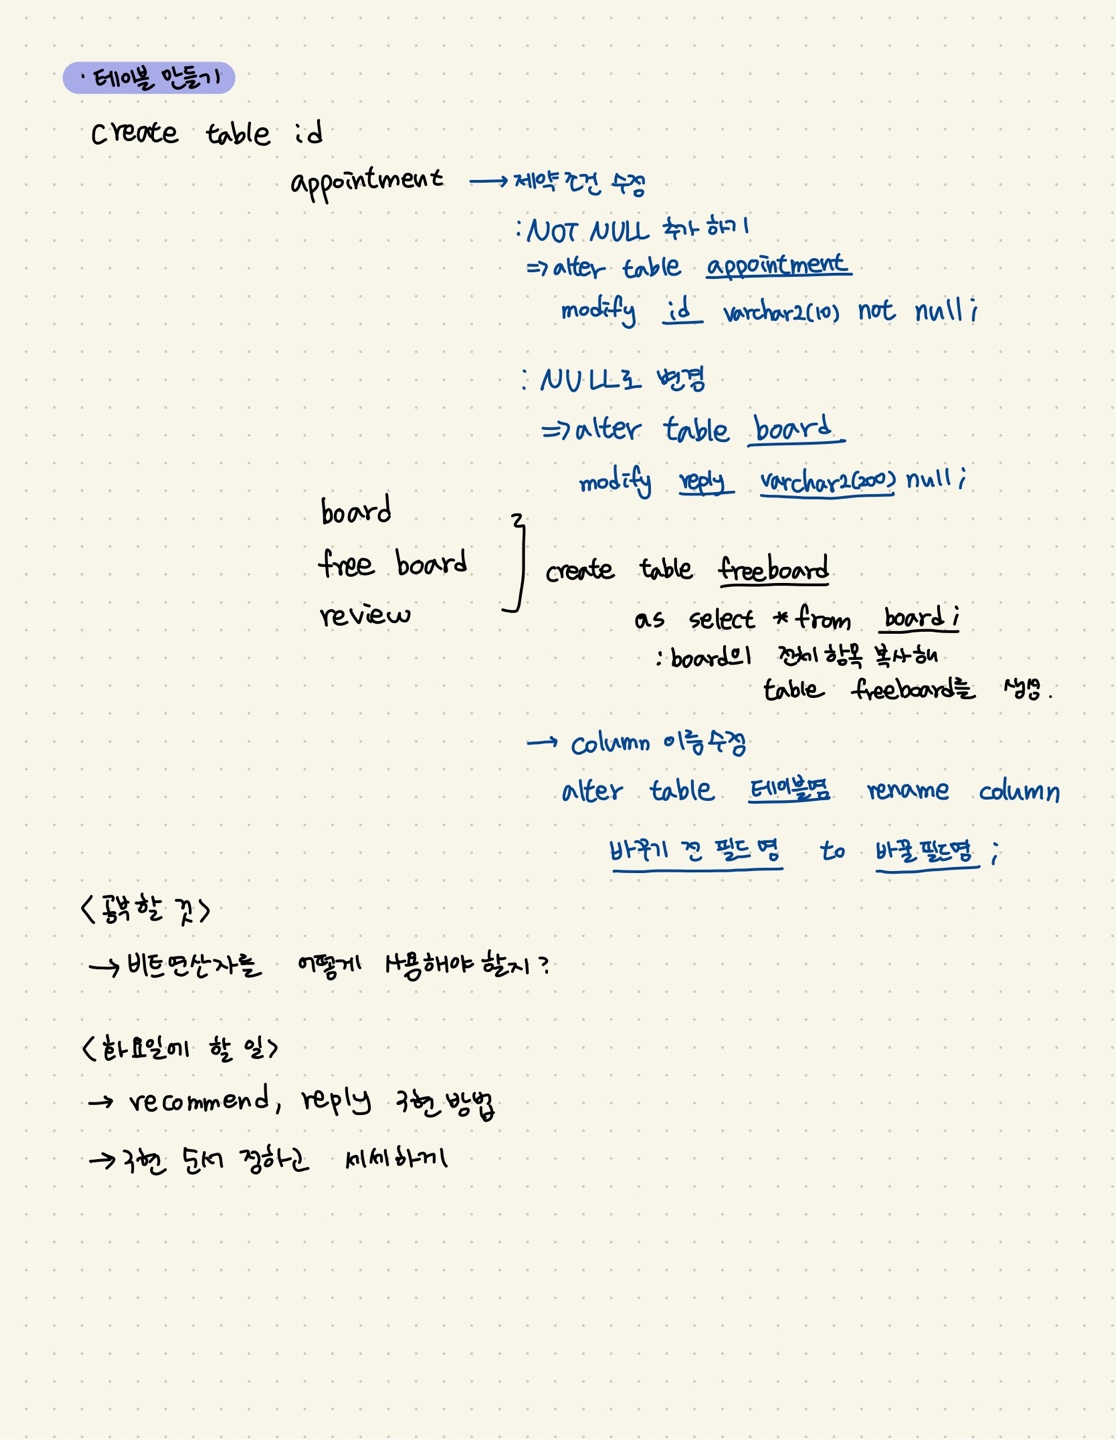 · 테이블 만들기
create table id
appointment → 제약조건 수정
: NOT NULL 추가하기
=> alter table appointment
modify id varchar2(10) not null;
: NULL로 변경
=> alter table board
modify reply varchar2(200) null;
board
free board
review
create table freeboard
as select * from board;
: board의 전체 항목 복사해
table freeboard를 생성.
→ column 이름수정
alter table 테이블명 rename column
바꾸기 전 필드명 to 바꿀필드명 ;
<공부할 것>
→ 비트연산자를 어떻게 사용해야 할지?
<화요일에 할 일>
→ recommend, reply 구현 방법
→ 구현 순서 정하고 세세하게